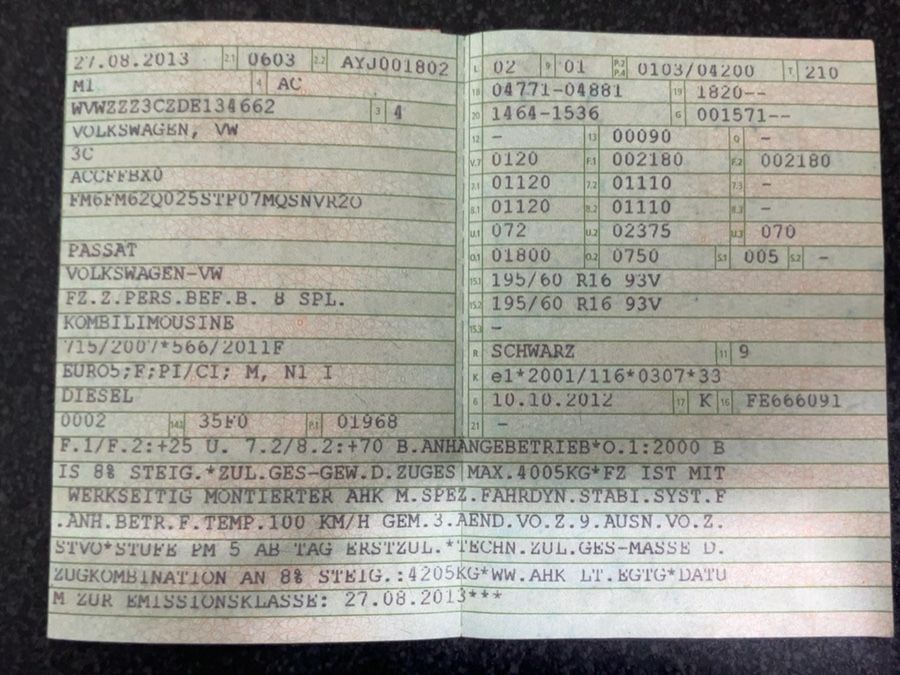 27.08.2013 2.1 0603 2.2 AYJ001802
M1 4 AC
WVWZZZ3CZDE134662 3 4
VOLKSWAGEN, VW
3C
ACCFFBX0
FM6FM62Q025STP07MQSNVR2O
PASSAT
VOLKSWAGEN-VW
FZ.Z.PERS.BEF.B. 8 SPL.
KOMBILIMOUSINE
715/2007*566/2011F
EURO5;F;PI/CI; M, N1 I
DIESEL
0002 14.1 35F0 P.1 01968
L 02 9 01 P.2 P.4 0103/04200 T 210
18 04771-04881 19 1820--
20 1464-1536 G 001571--
12 - 13 00090 Q -
V.7 0120 F.1 002180 F.2 002180
7.1 01120 7.2 01110 7.3 -
8.1 01120 8.2 01110 8.3 -
U.1 072 U.2 02375 U.3 070
O.1 01800 O.2 0750 S.1 005 S.2 -
15.1 195/60 R16 93V
15.2 195/60 R16 93V
15.3 -
R SCHWARZ 11 9
K e1*2001/116*0307*33
6 10.10.2012 17 K 16 FE666091
21 -
F.1/F.2:+25 U. 7.2/8.2:+70 B.ANHÄNGEBETRIEB*O.1:2000 B
IS 8% STEIG.*ZUL.GES-GEW.D.ZUGES MAX.4005KG*FZ IST MIT
WERKSEITIG MONTIERTER AHK M.SPEZ.FAHRDYN.STABI.SYST.F
.ANH.BETR.F.TEMP.100 KM/H GEM.3.AEND.VO.Z.9.AUSN.VO.Z.
STVO*STUFE PM 5 AB TAG ERSTZUL.*TECHN.ZUL.GES-MASSE D.
ZUGKOMBINATION AN 8% STEIG.:4205KG*WW.AHK LT.EGTG*DATU
M ZUR EMISSIONSKLASSE: 27.08.2013***